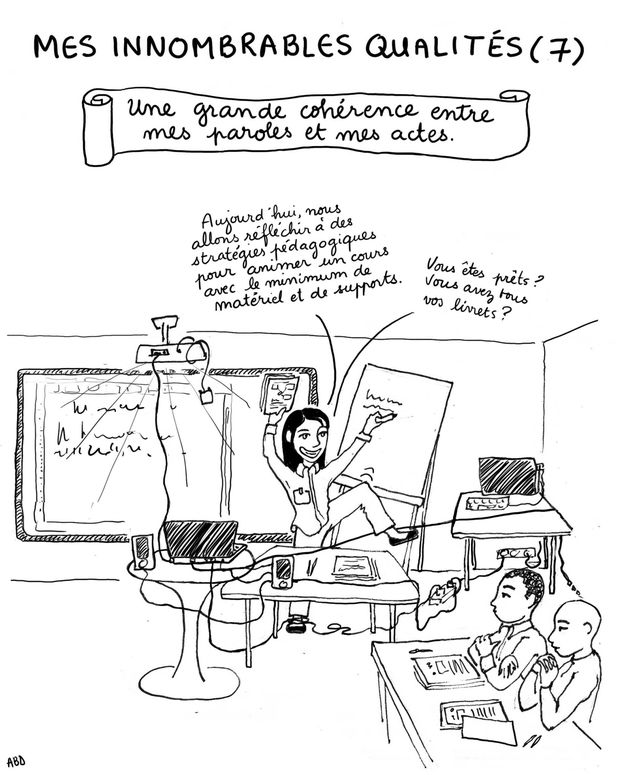 MES INNOMBRABLES QUALITÉS (7)
Une grande cohérence entre
mes paroles et mes actes.
Aujourd'hui, nous
allons réfléchir à des
stratégies pédagogiques
pour animer un cours
avec le minimum de
matériel et de supports.
Vous êtes prêts ?
Vous avez tous
vos livrets ?
ABD